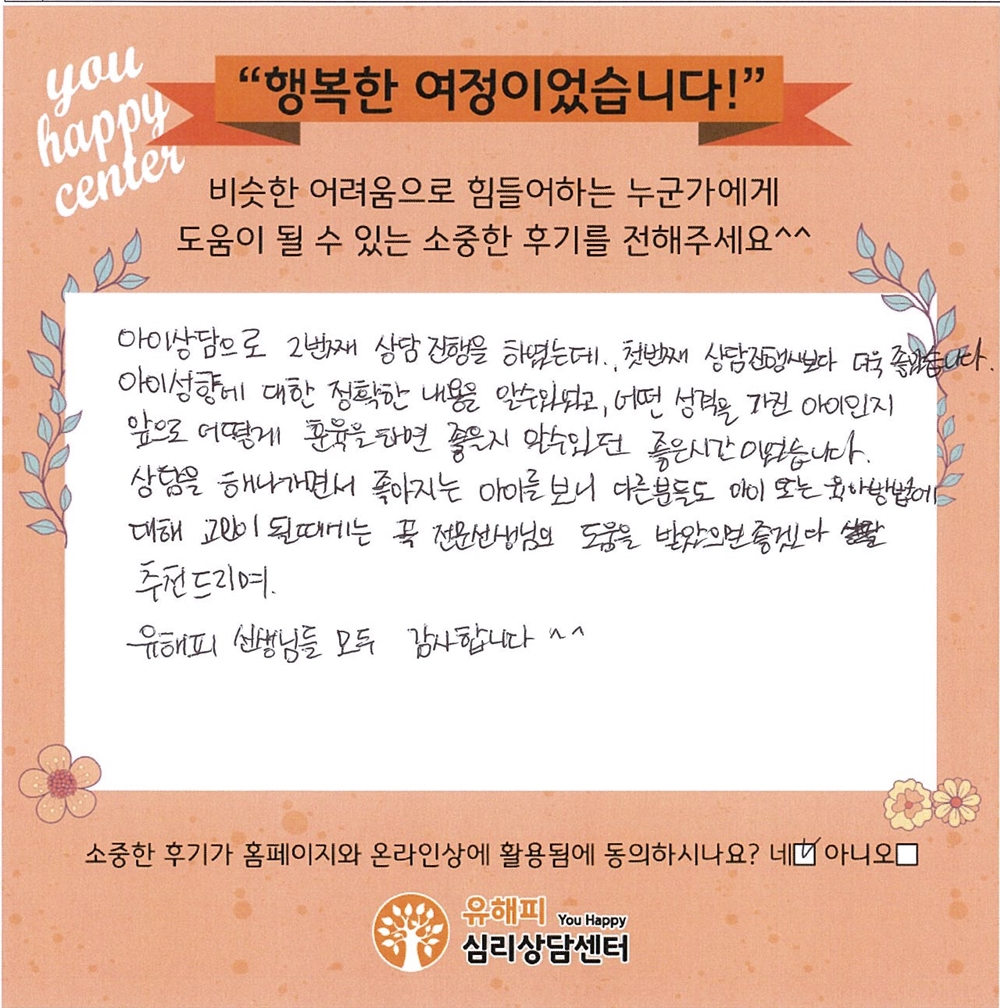 you
happy
center
“행복한 여정이었습니다!”
비슷한 어려움으로 힘들어하는 누군가에게
도움이 될 수 있는 소중한 후기를 전해주세요^^
아이상담으로 2번째 상담 진행을 하였는데.. 첫번째 상담진행시보다 더욱 좋았습니다.
아이성향에 대한 정확한 내용을 알수있었고, 어떤 성격을 가진 아이인지
앞으로 어떻게 훈육을하면 좋을지 알수있던 좋은시간이었습니다.
상담을 해나가면서 좋아지는 아이를보니 다른분들도 아이 또는 육아방법에
대해 고민이 될때에는 꼭 전문선생님의 도움을 받았으면좋겠다
추천드리며.
유해피 선생님들 모두 감사합니다 ^^
소중한 후기가 홈페이지와 온라인상에 활용됨에 동의하시나요? 네☑ 아니오☐
유해피 You Happy
심리상담센터